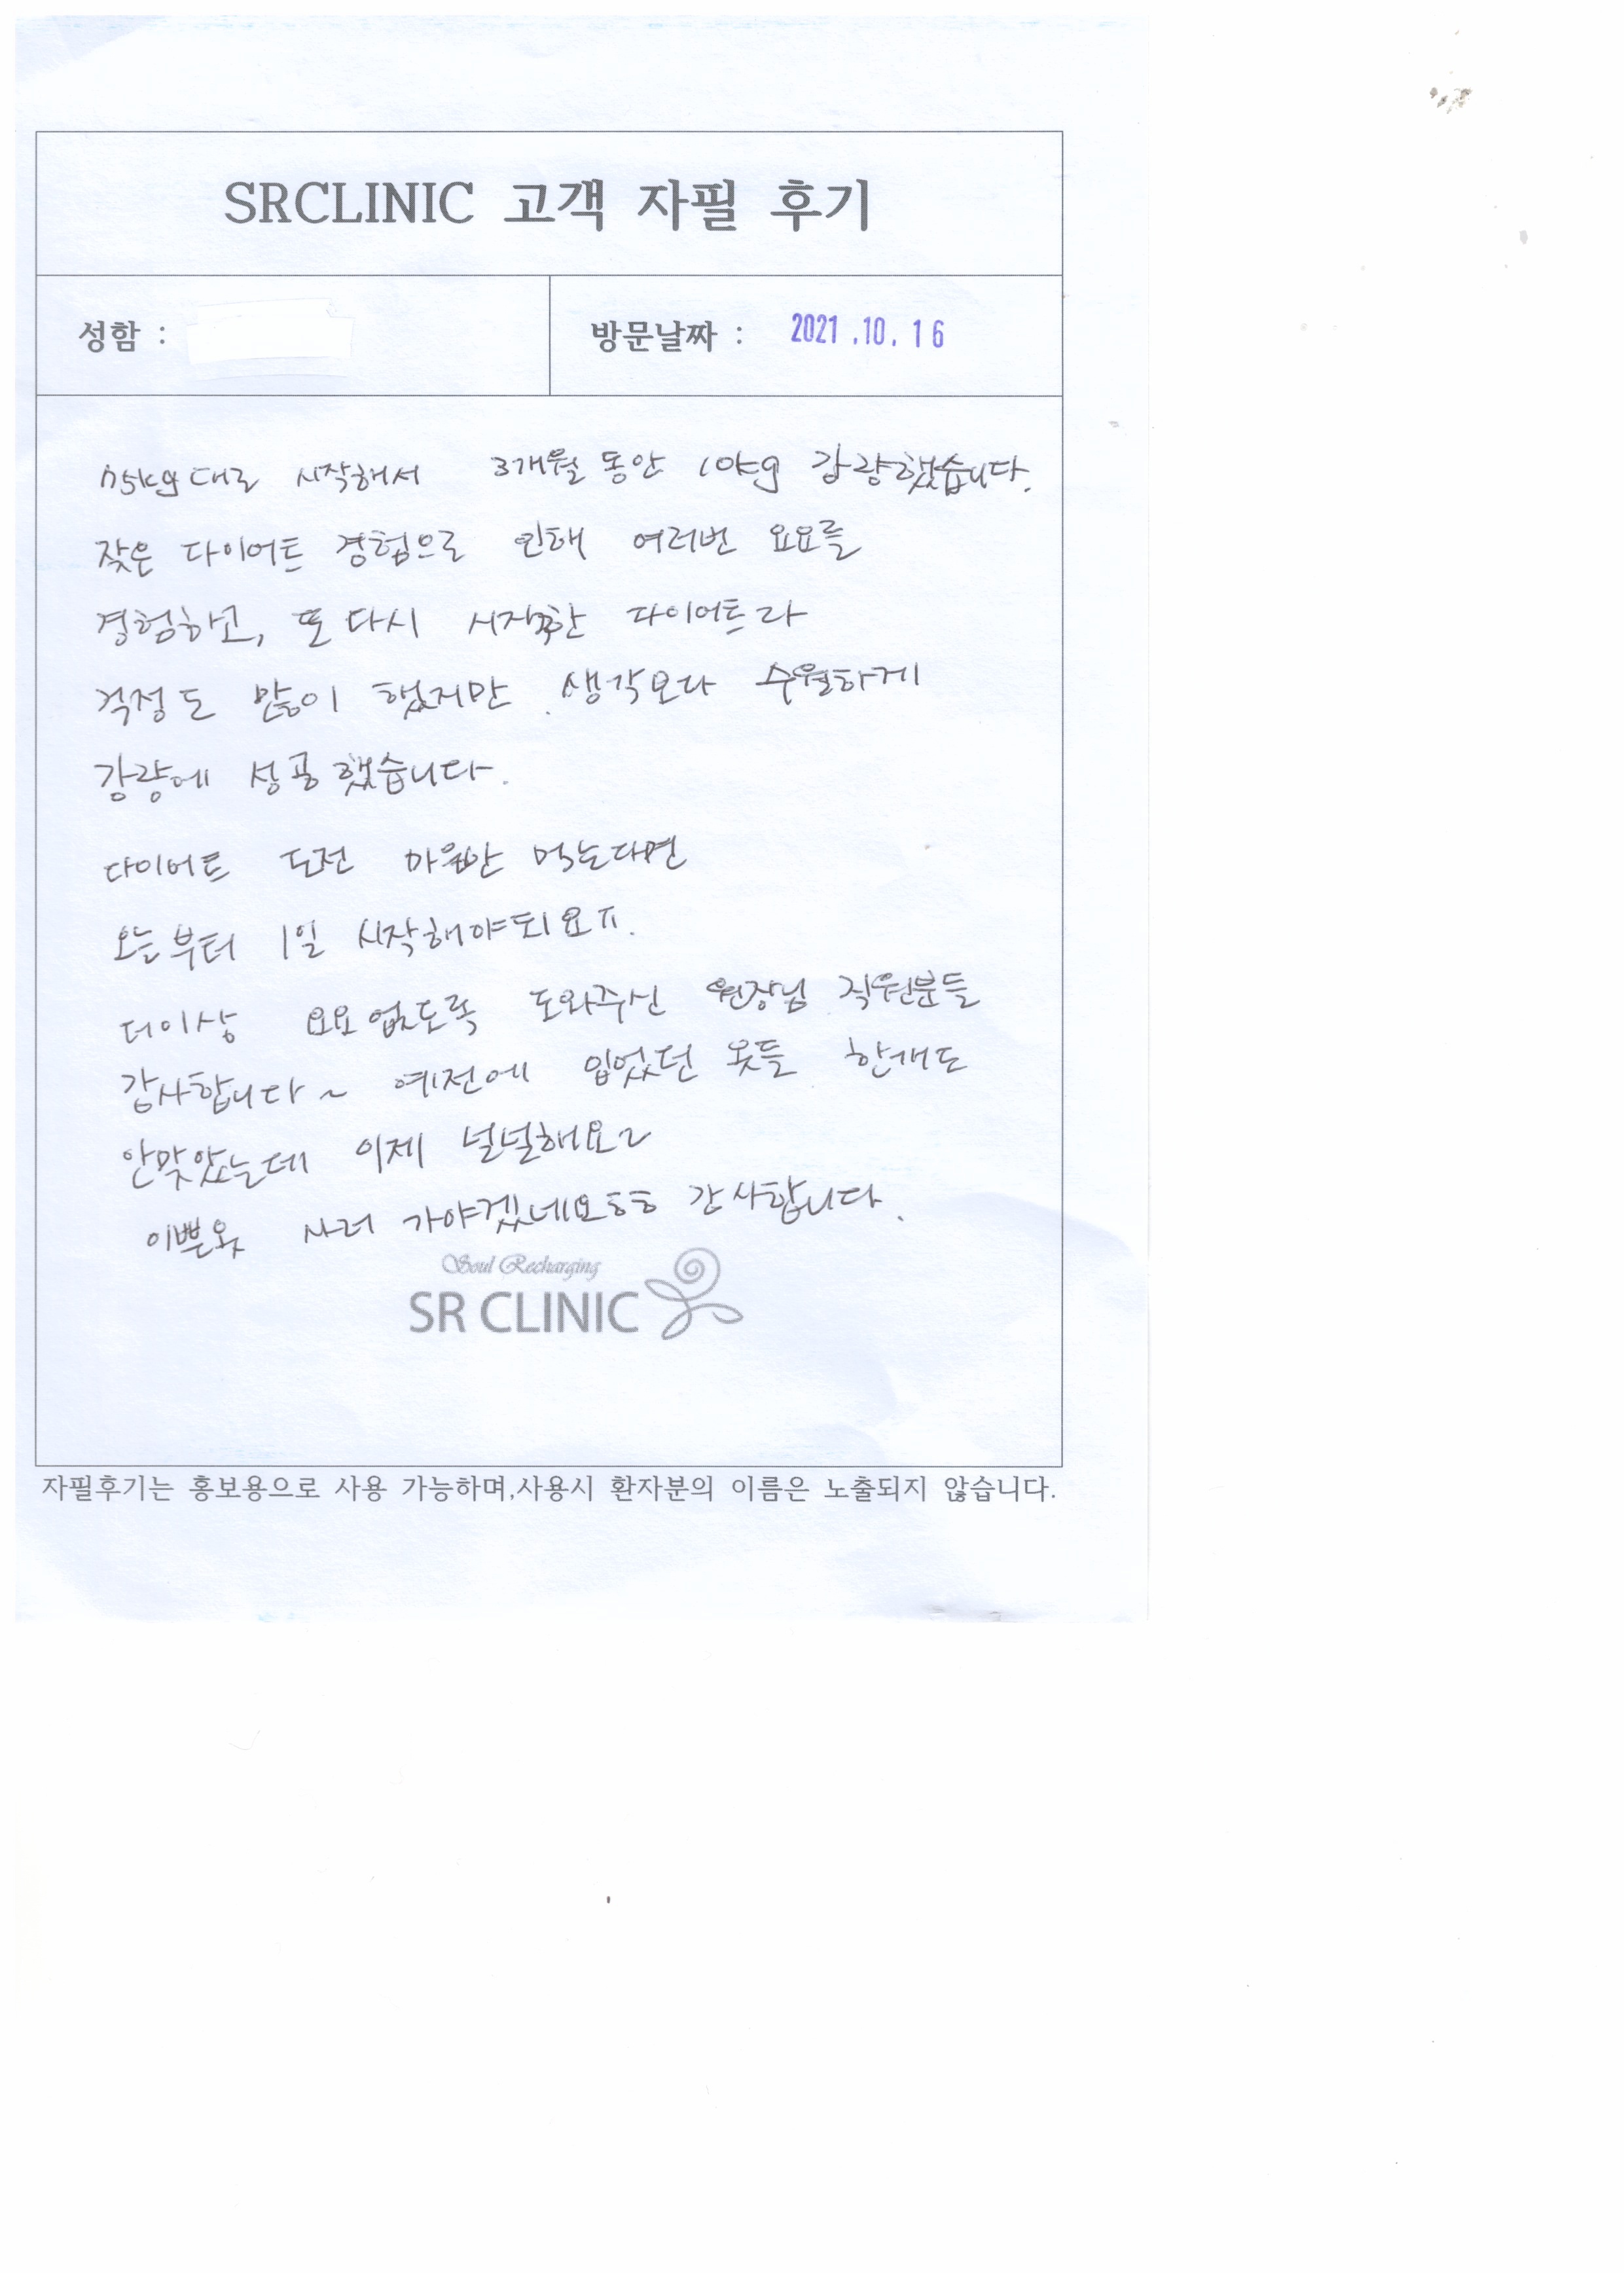 SRCLINIC 고객 자필 후기
성함 :
방문날짜 : 2021.10.16
75kg대로 시작해서 3개월 동안 10kg 감량했습니다.
잦은 다이어트 경험으로 인해 여러번 요요를
경험하고, 또 다시 시작한 다이어트라
걱정도 많이 했지만 생각보다 수월하게
감량에 성공했습니다.
다이어트 도전 마음만 먹는다면
오늘부터 1일 시작해야되요ㅠ.
더이상 요요 없도록 도와주신 원장님 직원분들
감사합니다~ 예전에 입었던 옷들 한개도
안맞았는데 이제 널널해요~
이쁜옷 사러 가야겠네요ㅎㅎ 감사합니다.
Soul Recharging
SR CLINIC
자필후기는 홍보용으로 사용 가능하며,사용시 환자분의 이름은 노출되지 않습니다.